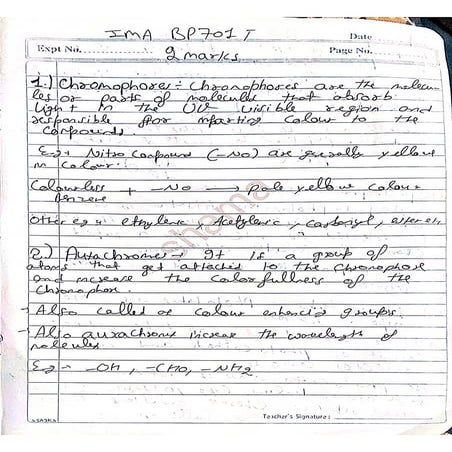 IMA BP701T
Date
Expt No.
2 marks
Page No.
1.) Chromophores :- Chromophores are the molecu-
les or parts of molecules that absorb
light in the UV visible region and
responsible for imparting colour to the
compounds.
E.g → Nitro Compound (-No) are generally yellow
in colour.
Colourless + -No → pale yellow colour
benzene
Other eg :- ethylene, Acetylenic, carbonyl, ester etc
2.) Auxachrome → It is a group of
atoms that get attached to the chromophore
and increase the colorfullness of the
chromophore.
Also called as colour enhancing groups.
Also auxachrome increase the wavelength of
molecules
E.g - -OH, -CHO, -NH2
Teacher's Signature :
sharma